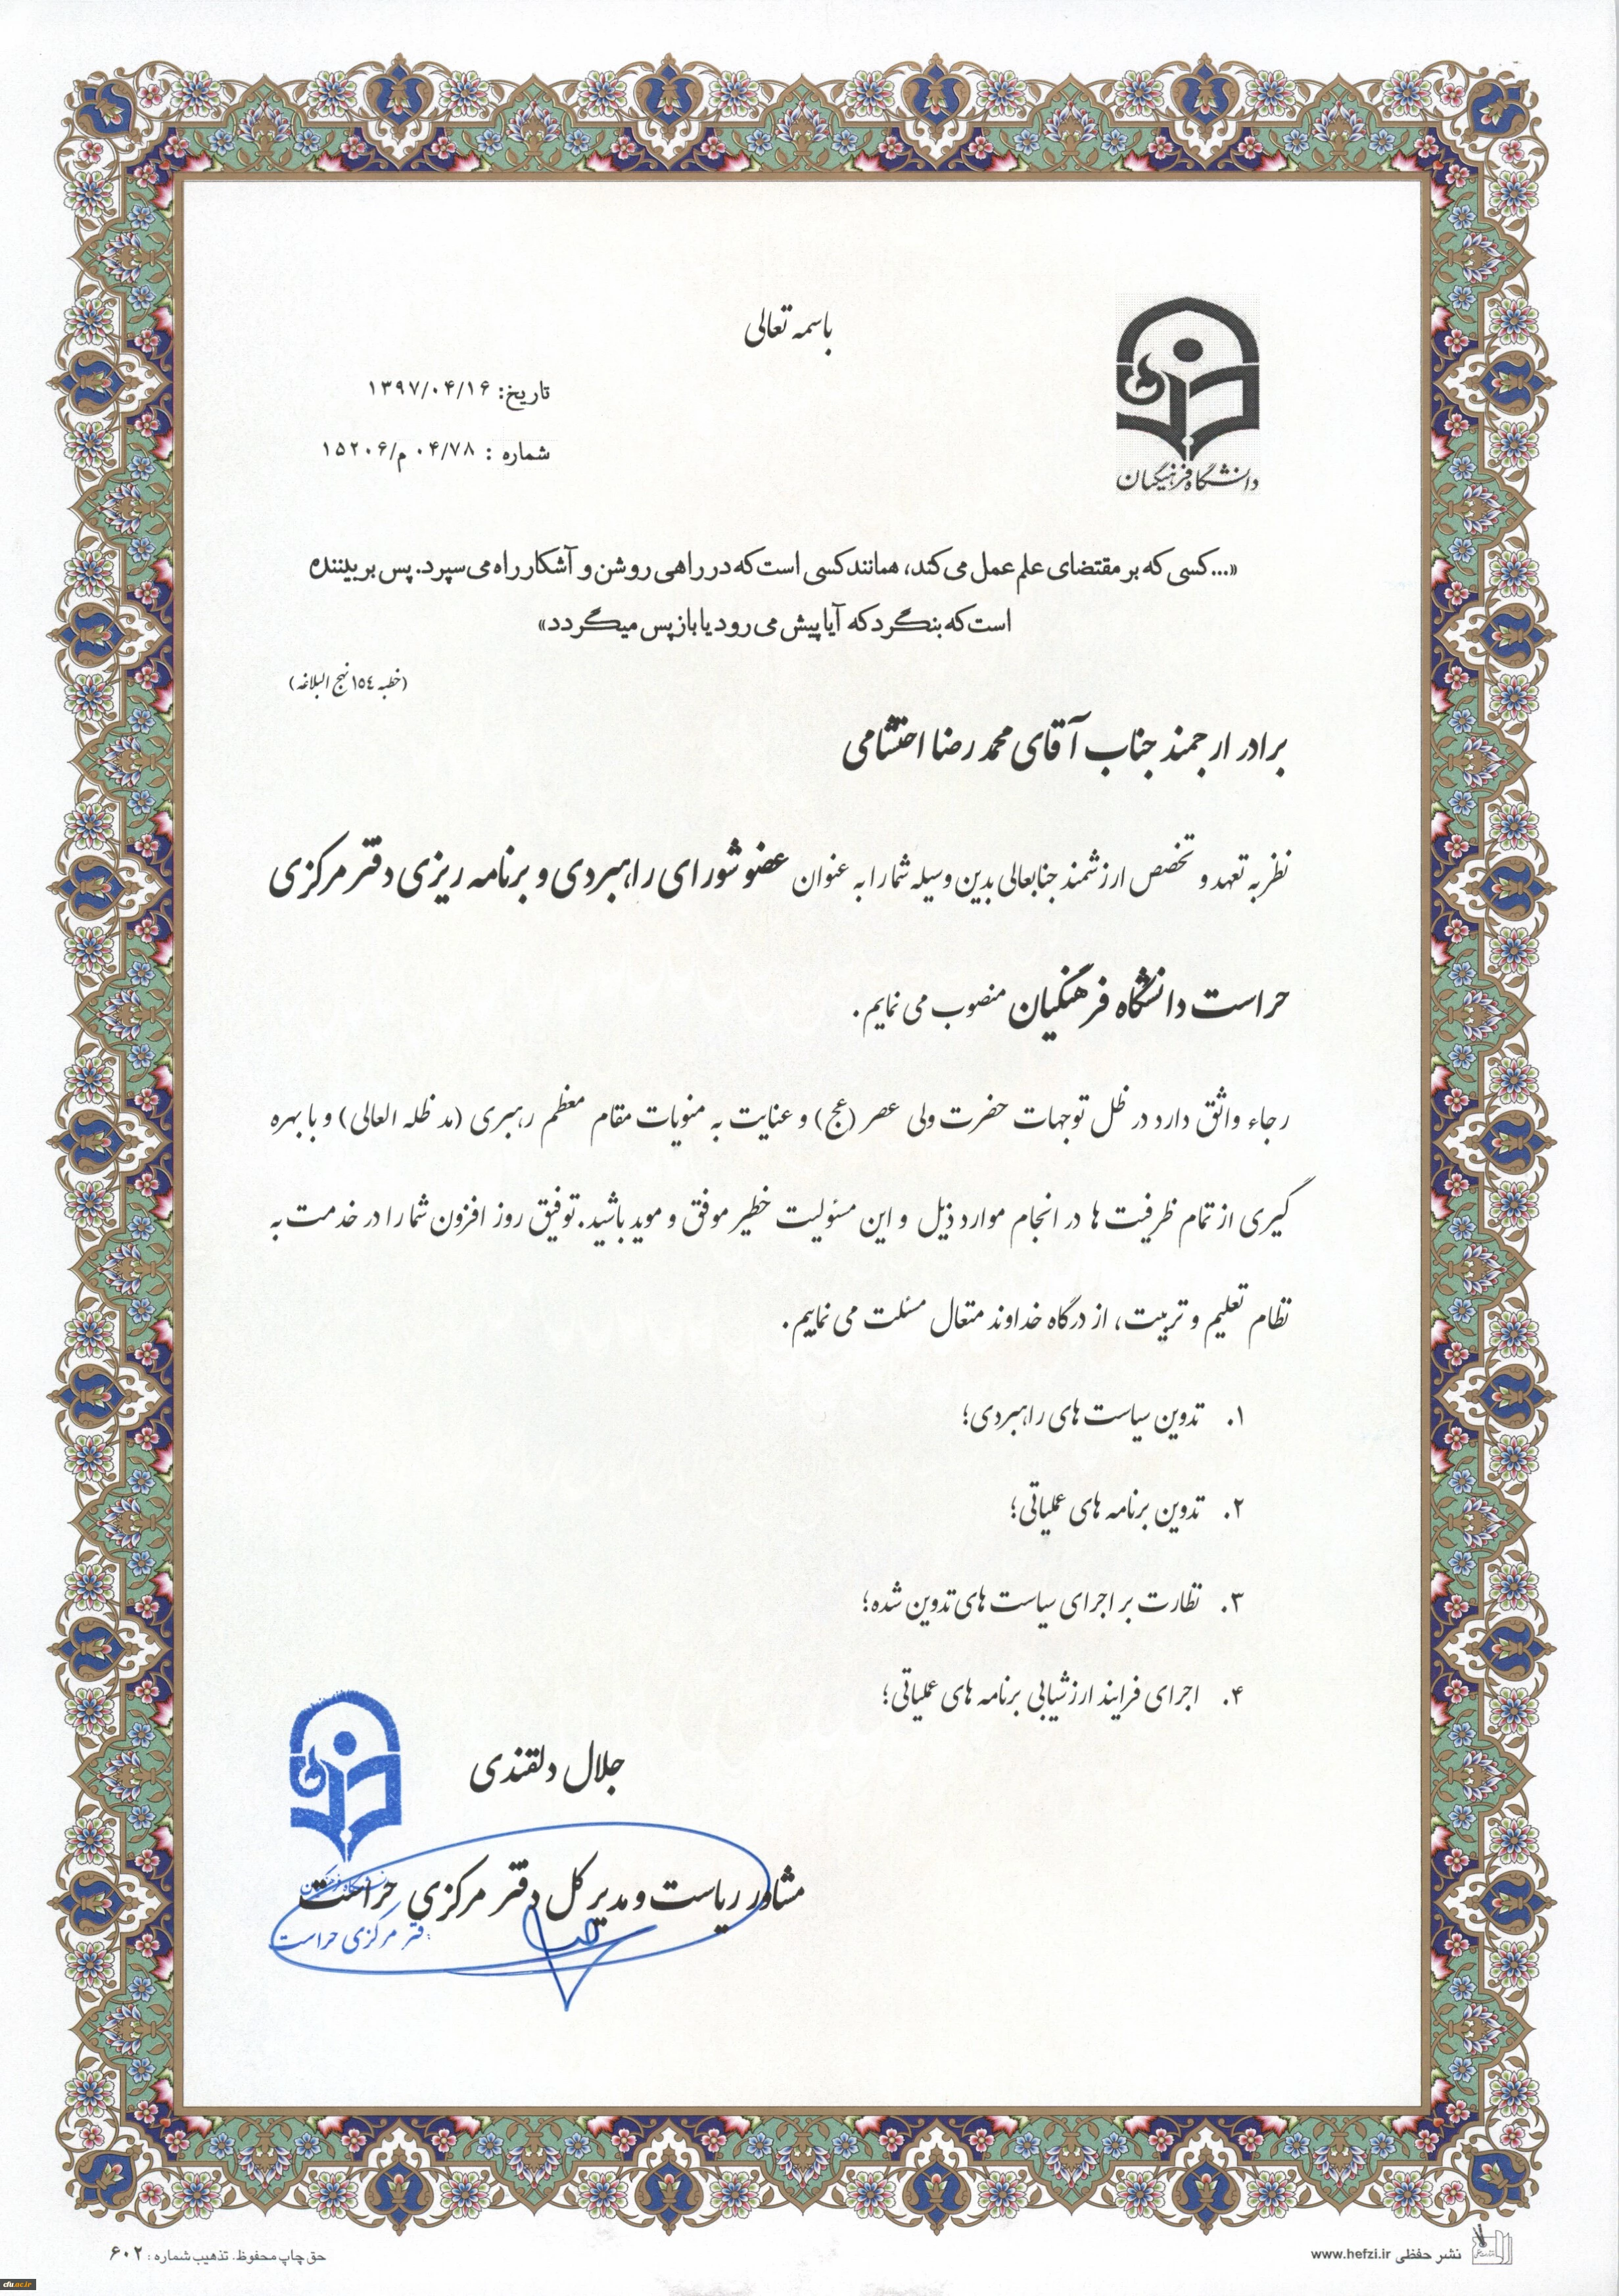 باسمه تعالی
دانشگاه فرهنگیان
تاریخ: ۱۳۹۷/۰۴/۱۶
شماره : ۰۴/۷۸ م/۱۵۲۰۶
«...کسی که بر مقتضای علم عمل می کند، همانند کسی است که در راهی روشن و آشکار راه می سپرد. پس بر بیننده
است که بنگرد که آیا پیش می رود یا باز پس میگردد»
(خطبه ١٥٤ نهج البلاغه)
برادر ارجمند جناب آقای محمد رضا احتشامی
نظر به تعهد و تخصص ارزشمند جنابعالی بدین وسیله شما را به عنوان عضو شورای راهبردی و برنامه ریزی دفتر مرکزی
حراست دانشگاه فرهنگیان منصوب می نمایم.
رجاء واثق دارد در ظل توجهات حضرت ولی عصر (عج) و عنایت به منویات مقام معظم رهبری (مد ظله العالی) و با بهره
گیری از تمام ظرفیت ها در انجام موارد ذیل و این مسئولیت خطیر موفق و موید باشید. توفیق روز افزون شما را در خدمت به
نظام تعلیم و تربیت، از درگاه خداوند متعال مسئلت می نماییم.
۱. تدوین سیاست های راهبردی؛
۲. تدوین برنامه های عملیاتی؛
۳. نظارت بر اجرای سیاست های تدوین شده؛
۴. اجرای فرایند ارزشیابی برنامه های عملیاتی؛
جلال دلقندی
مشاور ریاست و مدیر کل دفتر مرکزی حراست
مرکزی حراست
نشر حفظی www.hefzi.ir
حق چاپ محفوظ. تذهیب شماره : ۶۰۲
cfu.ac.ir